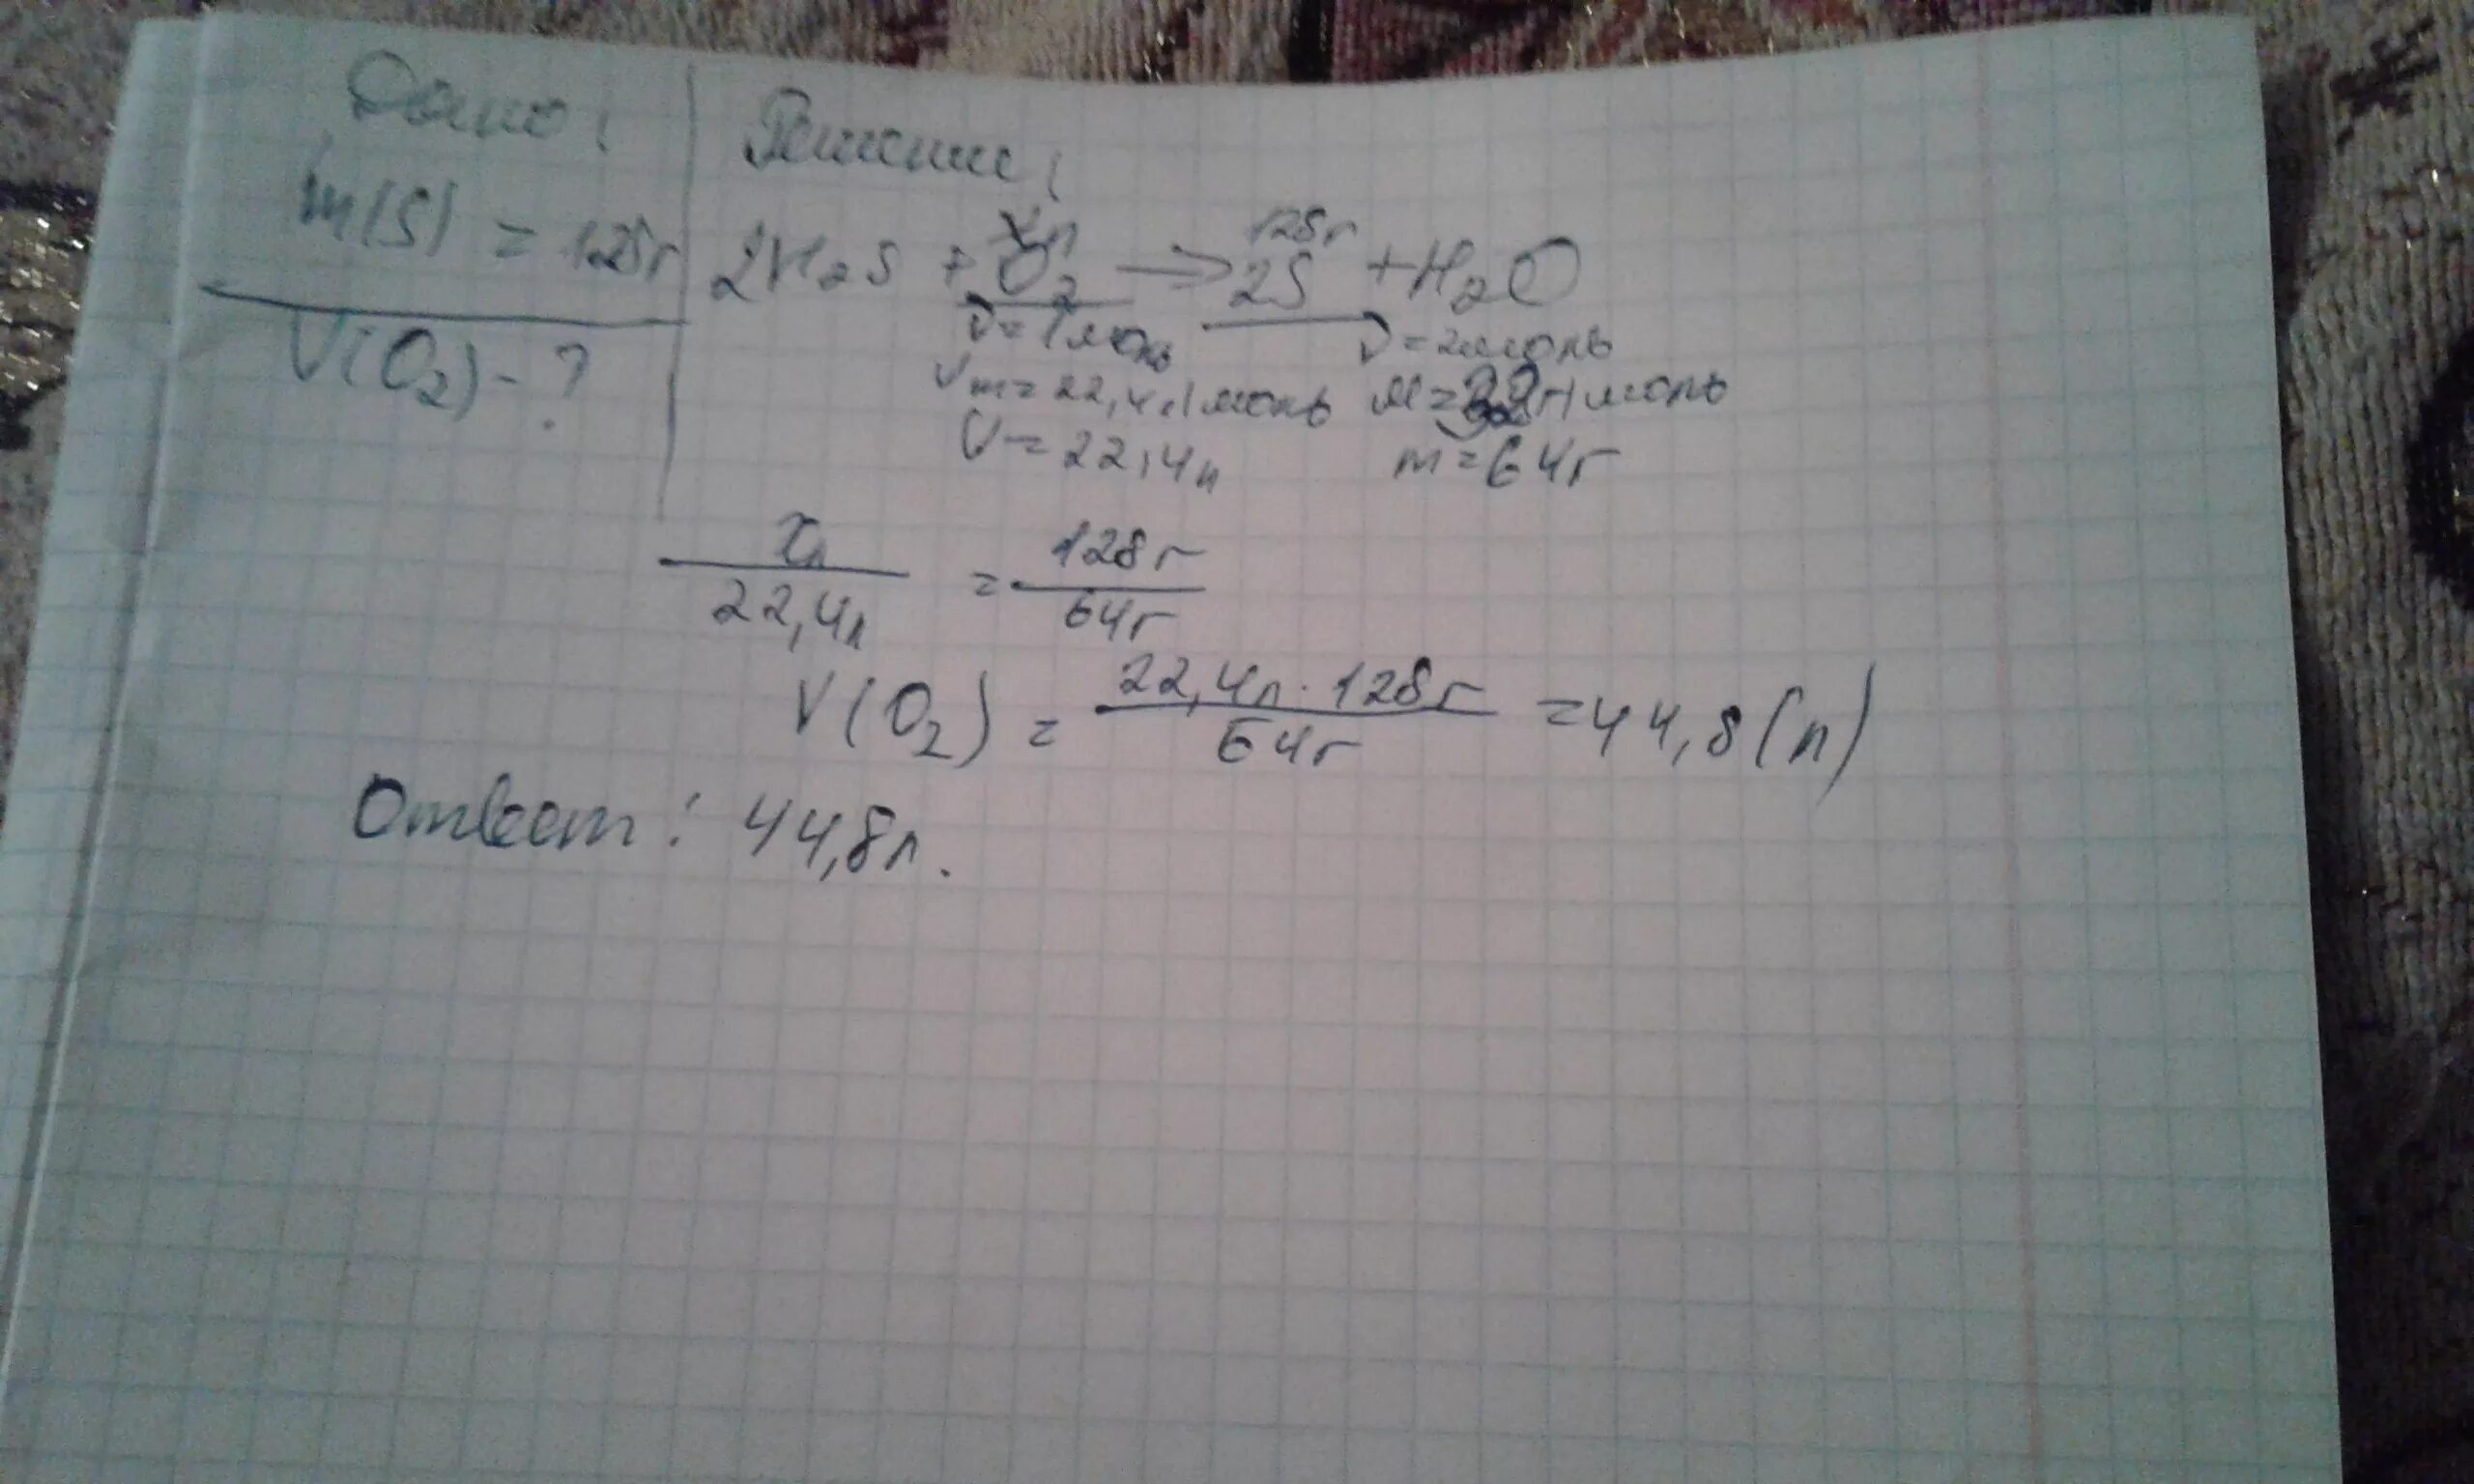 Дано:
m(S) = 128г
V(O2) - ?
Решение:
xл 128г
2H2S + O2 => 2S + H2O
ν = 1моль ν = 2моль
Vm = 22,4л/моль M = 32г/моль
V = 22,4л m = 64г
xл/22,4л = 128г/64г
V(O2) = 22,4л · 128г/64г = 44,8(л)
Ответ: 44,8л.